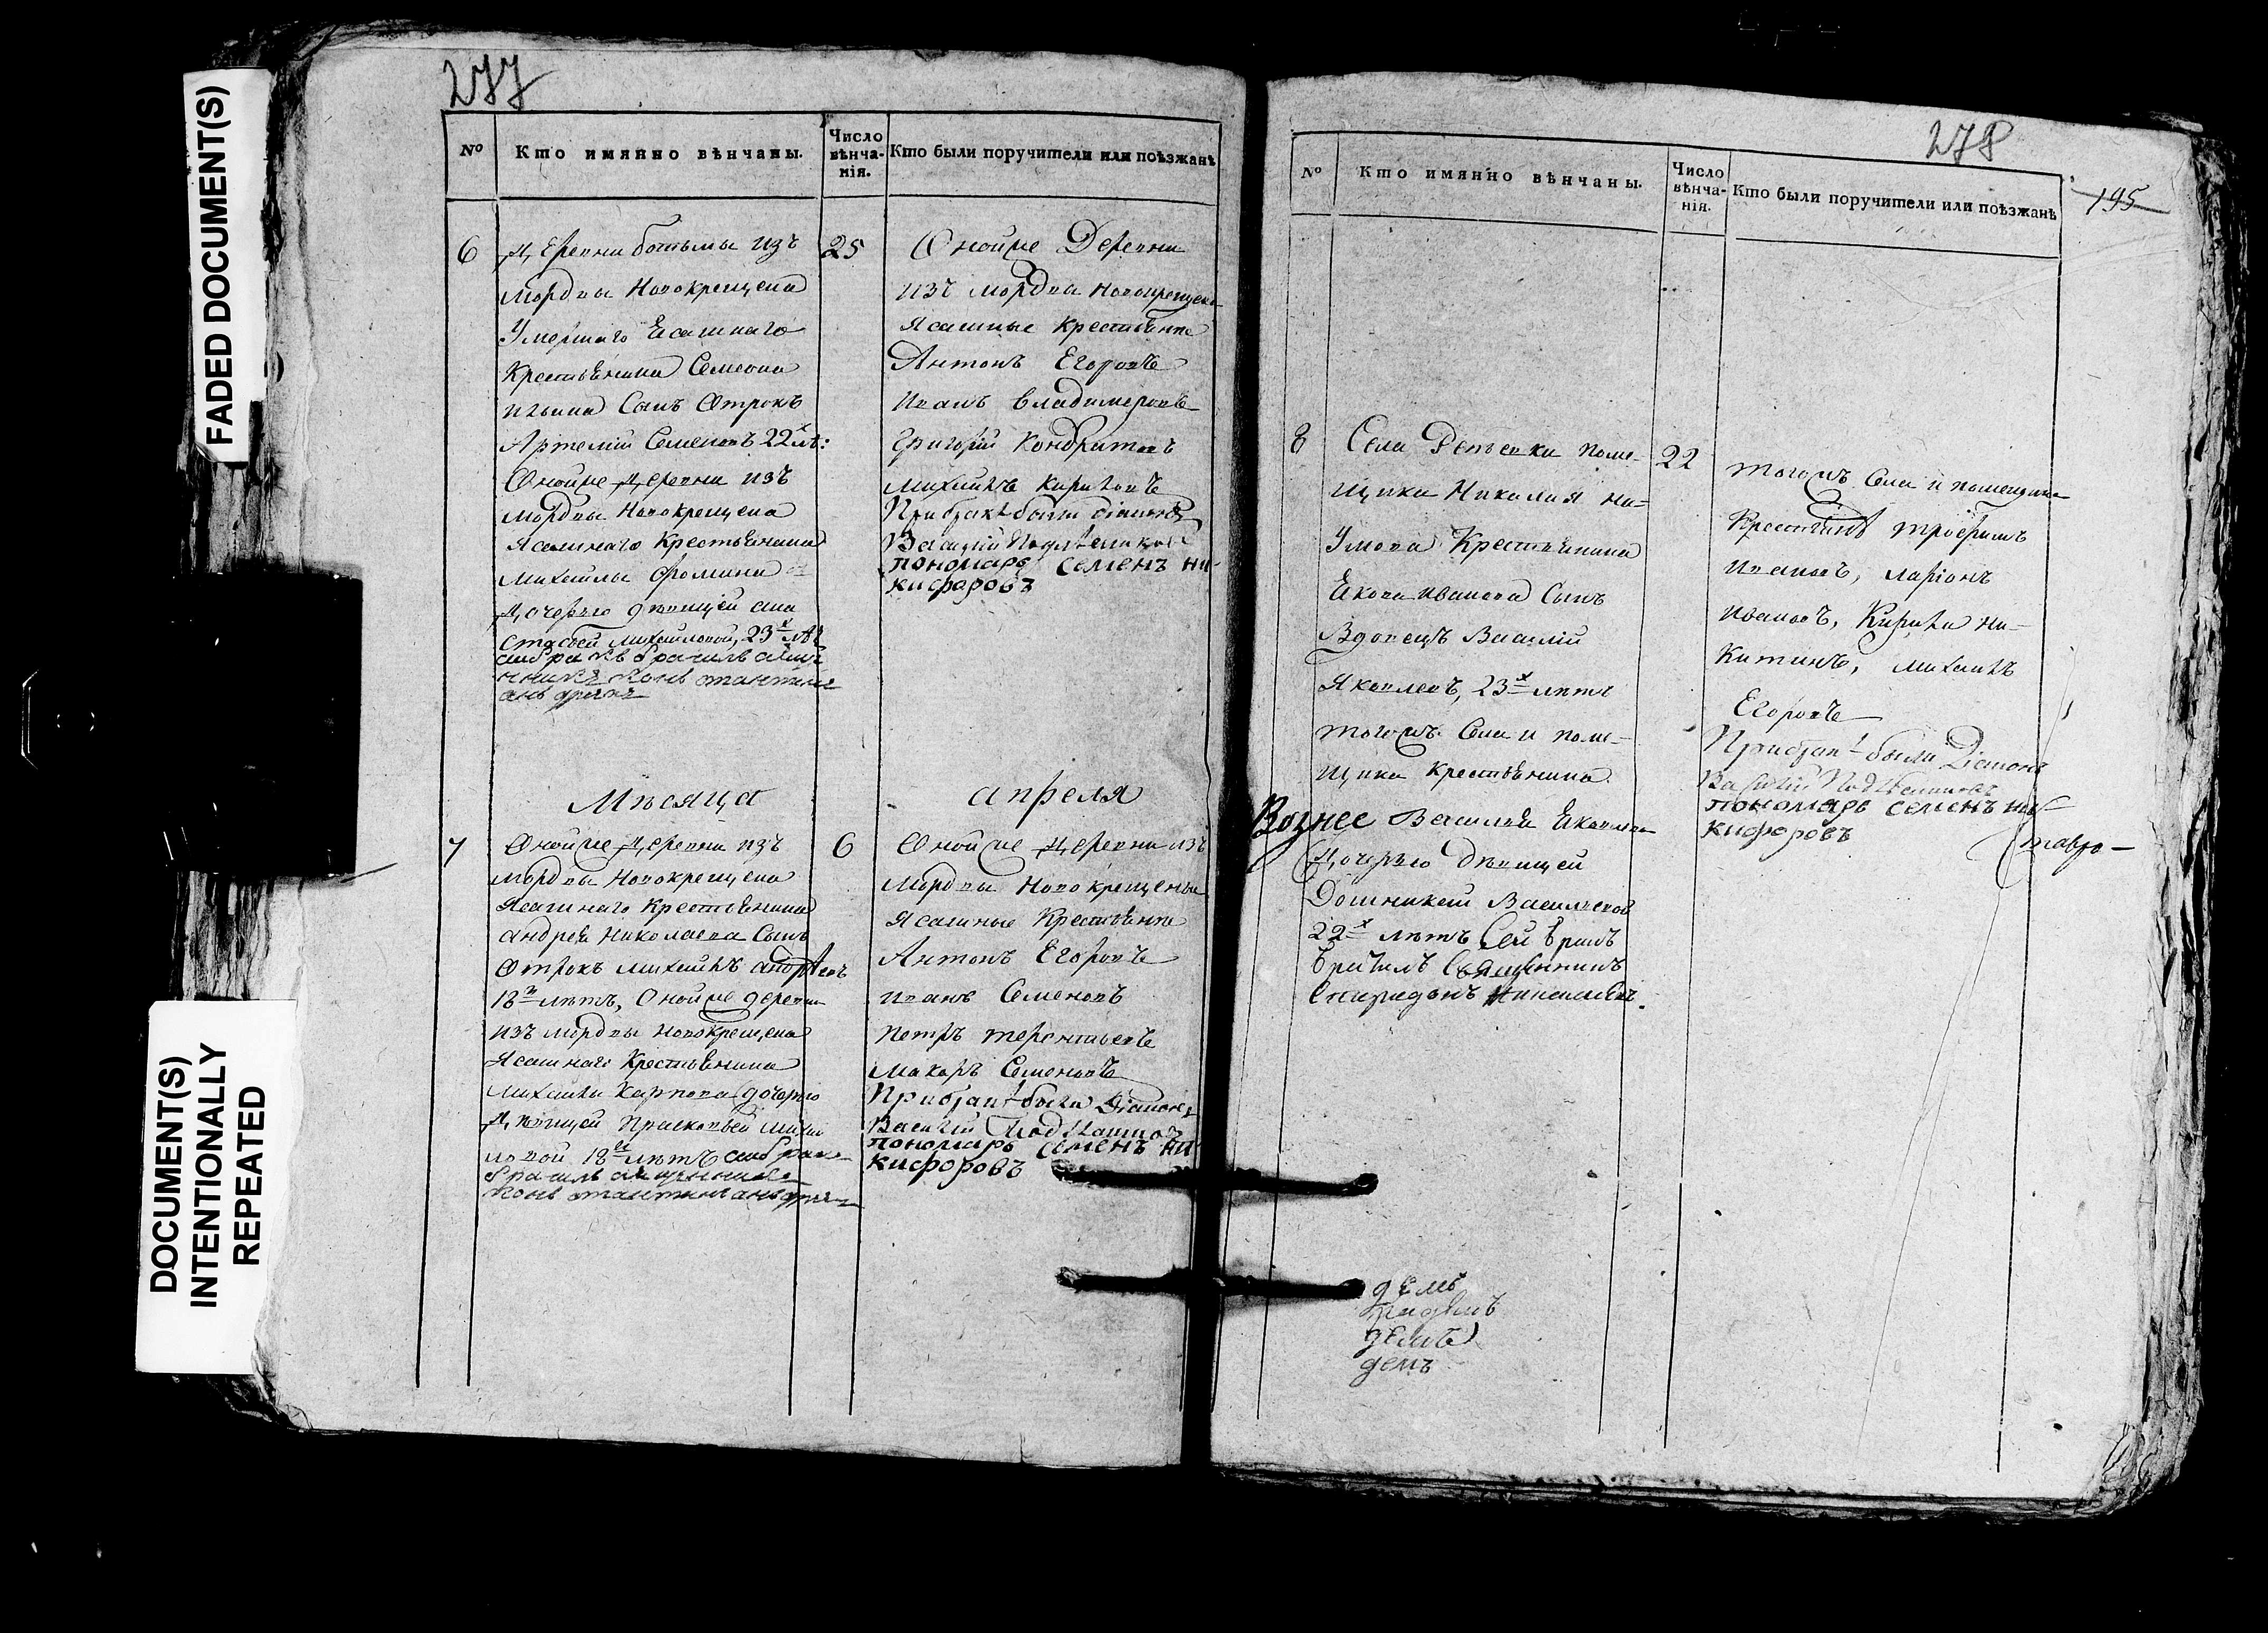 FADED DOCUMENT(S)
DOCUMENT(S)
INTENTIONALLY
REPEATED
277
№ Кто имянно вѣнчаны. Число вѣнча-нія. Кто были поручители или поѣзжанѣ
6
Деревни ботьмы изъ
Мордвы Новокрещена
Умершаго Есашнаго
Крестьянина Семиона
Ильина Сынъ Отрокъ
Артемий Семеновъ 22х лѣ:
Оной же Деревни изъ
мордвы Новокрещена
Ясашнаго Крестьянина
Михаилы Фомина
Дочерью девицей ана
стасьей Михайловой, 23х лѣ
25
Оной же Деревни
изъ Мордвы новокрещена
Ясашные крестьяне
Антонъ Егоровъ
Иванъ Владимеровъ
Григорій Кондратовъ
Михайлъ Кириловъ
При бракѣ были діаконъ
Василий
пономарь Семенъ ни-
кифоровъ
Мѣсяца апреля
7
Оной же Деревни изъ
Мордвы Новокрещена
Ясашнаго Крестьянина
Андрея Николаева Сынъ
Отрокъ Михайлъ андреевъ
18ти лѣтъ, Оной же деревни
изъ мордвы новокрещена
Ясашнаго Крестьянина
Михаилы Карпова дочерью
Девицей Прасковьей Михай
ловой 18 лѣтъ
6
Оной же Деревни изъ
Мордвы Новокрещены
Ясашные Крестьяне
Антонъ Егоровъ
Иванъ Семеновъ
Петръ Терентьевъ
Макаръ Семеновъ
При бракѣ были Діаконъ
Василий
пономарь Семенъ ни-
кифоровъ
278
195
№ Кто имянно вѣнчаны. Число вѣнча-нія. Кто были поручители или поѣзжанѣ
8
Села Репьевки поме-
щика Николая На-
умова Крестьянина
Якова Иванова Сынъ
Вдовецъ Василій
Яковлевъ, 23х лѣтъ
того жъ Села и поме-
щика крестьянина
Василья Яковлева
Дочерью девицей
Домникей Васильевой
22х лѣтъ Сей бракъ
Священникъ
22
того жъ Села и помещика
Крестьяне Трофимъ
Ивановъ, Ларіонъ
Ивановъ, Кирила Ни-
китинъ, Михаилъ
Егоровъ
При бракѣ были Діаконъ
Василий
пономарь Семенъ ни-
кифоровъ
Вознес
ставро-
демъ
демъ
демъ